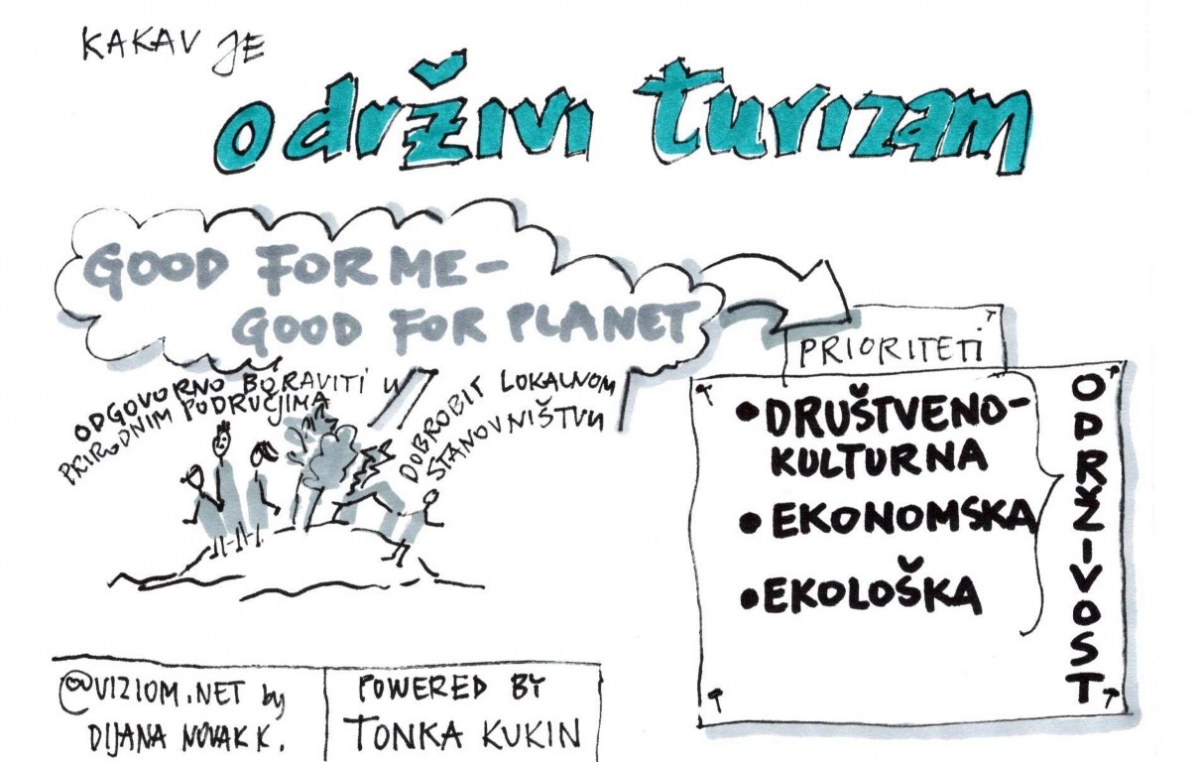 KAKAV JE
održivi turizam
GOOD FOR ME-
GOOD FOR PLANET
ODGOVORNO BORAVITI U
PRIRODNIM PODRUČJIMA
DOBROBIT LOKALNOM
STANOVNIŠTVU
PRIORITETI
• DRUŠTVENO-
KULTURNA
• EKONOMSKA
• EKOLOŠKA
ODRŽIVOST
@VIZIOM.NET by
DIJANA NOVAK K.
POWERED BY
TONKA KUKIN